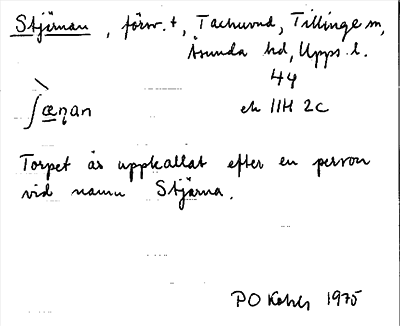 Stjärnan, förw. t, Tachuvud, Tillinge sn,
Åsunda hd, Upps. l.
44
ʃæɳan ek 11H 2c
Torpet är uppkallat efter en person
vid namn Stjärna.
PO 1975